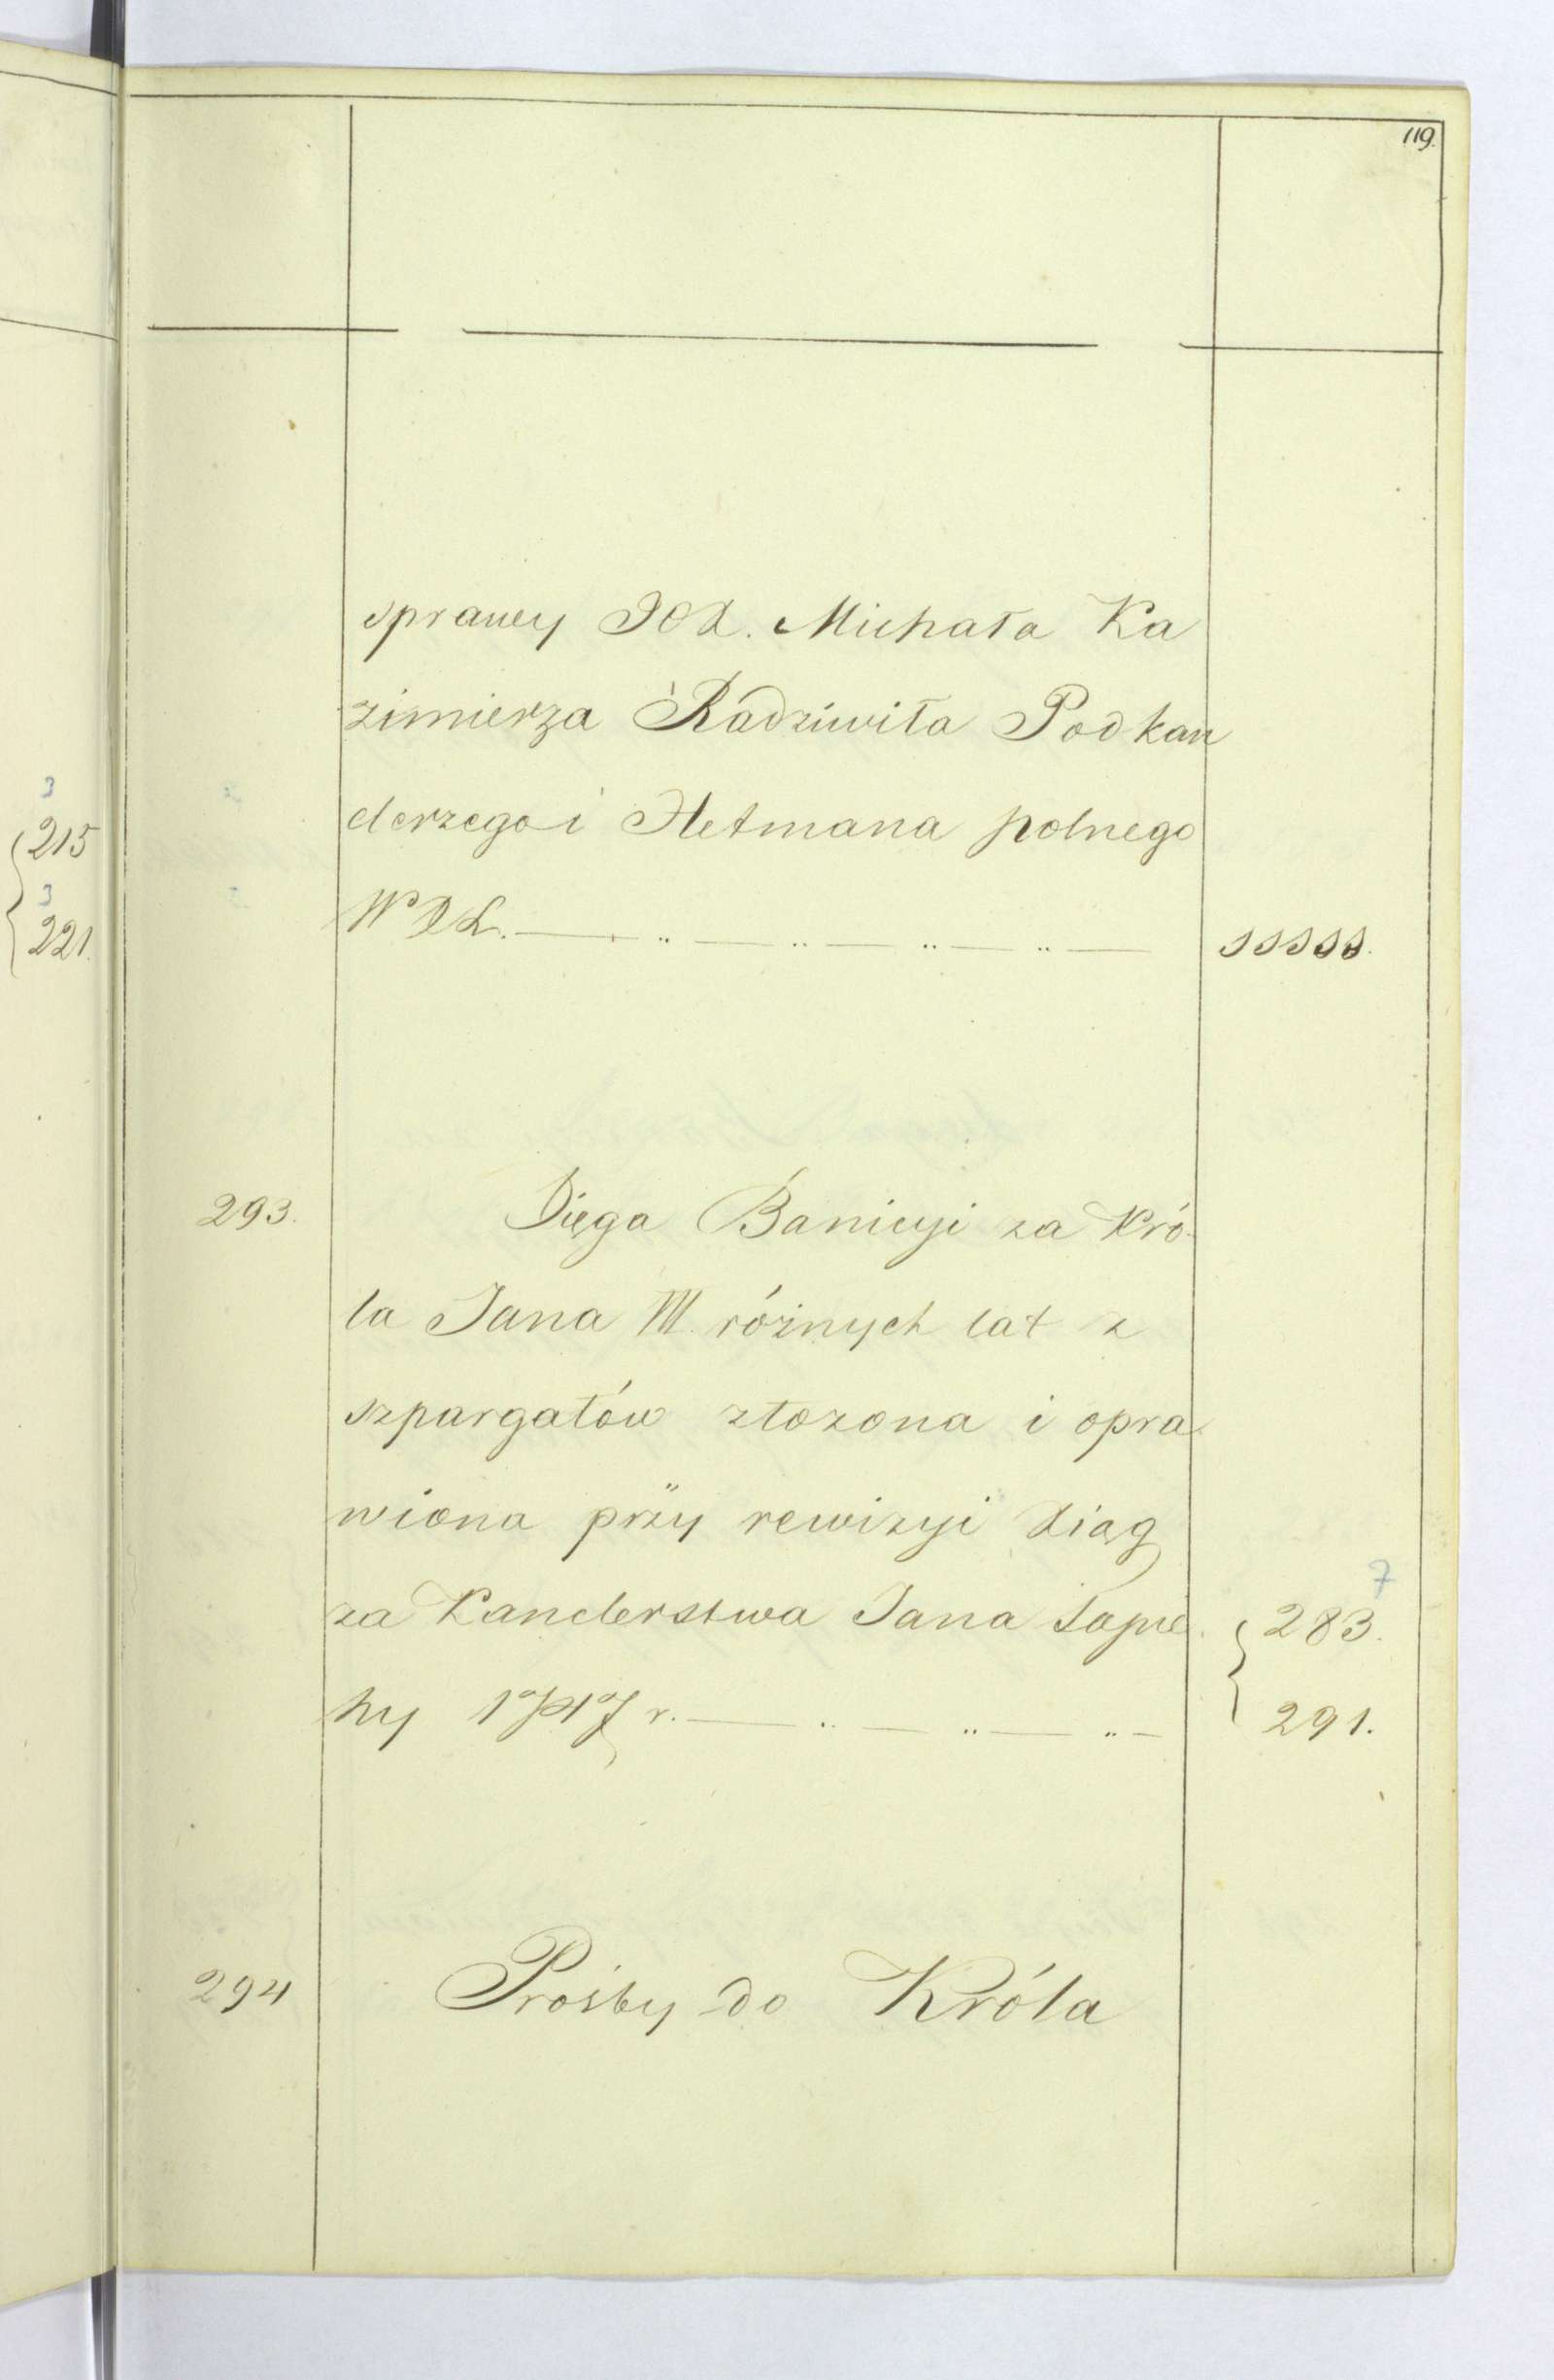 119.
215
221.
sprawy JOX. Michała Ka
zimierza Radziwiła Podkan
clerzego i Hetmana polnego
W X L. — .. — .. — .. — .. — SSSSS.
293. Xięga Banicyi za Kró-
la Jana III. różnych lat z
szpargałów złożona i opra
wiona przy rewizyi Xiąg
za Kanclerstwa Jana Sapie
hy 1717 r. — .. — .. — .. —
7
283.
291.
294 Prośby do Króla